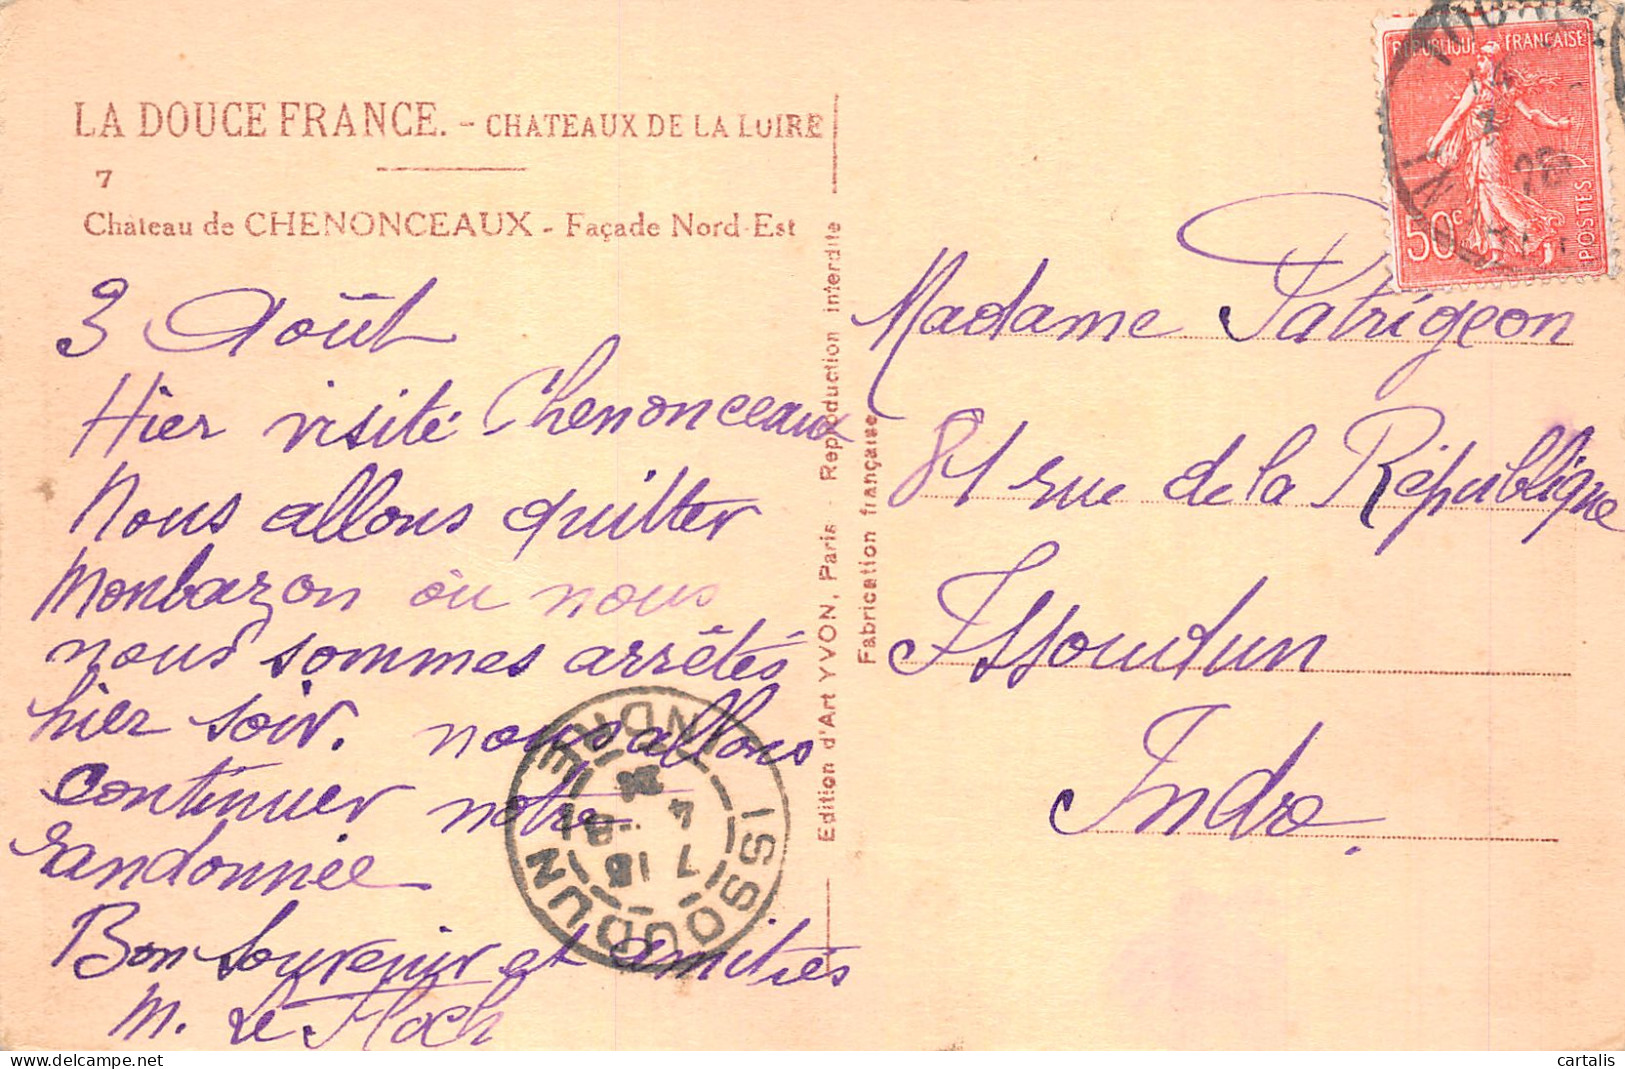 LA DOUCE FRANCE. - CHATEAUX DE LA LOIRE
7
Château de CHENONCEAUX - Façade Nord-Est
3 Août
Hier visité Chenonceaux
Nous allons quitter
Monbazon où nous
nous sommes arrêtés
hier soir. nous allons
continuer notre
randonnée
Bon souvenir et amitiés
M. Le Floch
Edition d'Art YVON, Paris - Reproduction interdite
Fabrication française
RÉPUBLIQUE FRANÇAISE
50c
POSTES
Madame Patrigeon
81 rue de la République
Issoudun
Indre.
ISSOUDUN
INDRE
7 16
4 8
cartalis